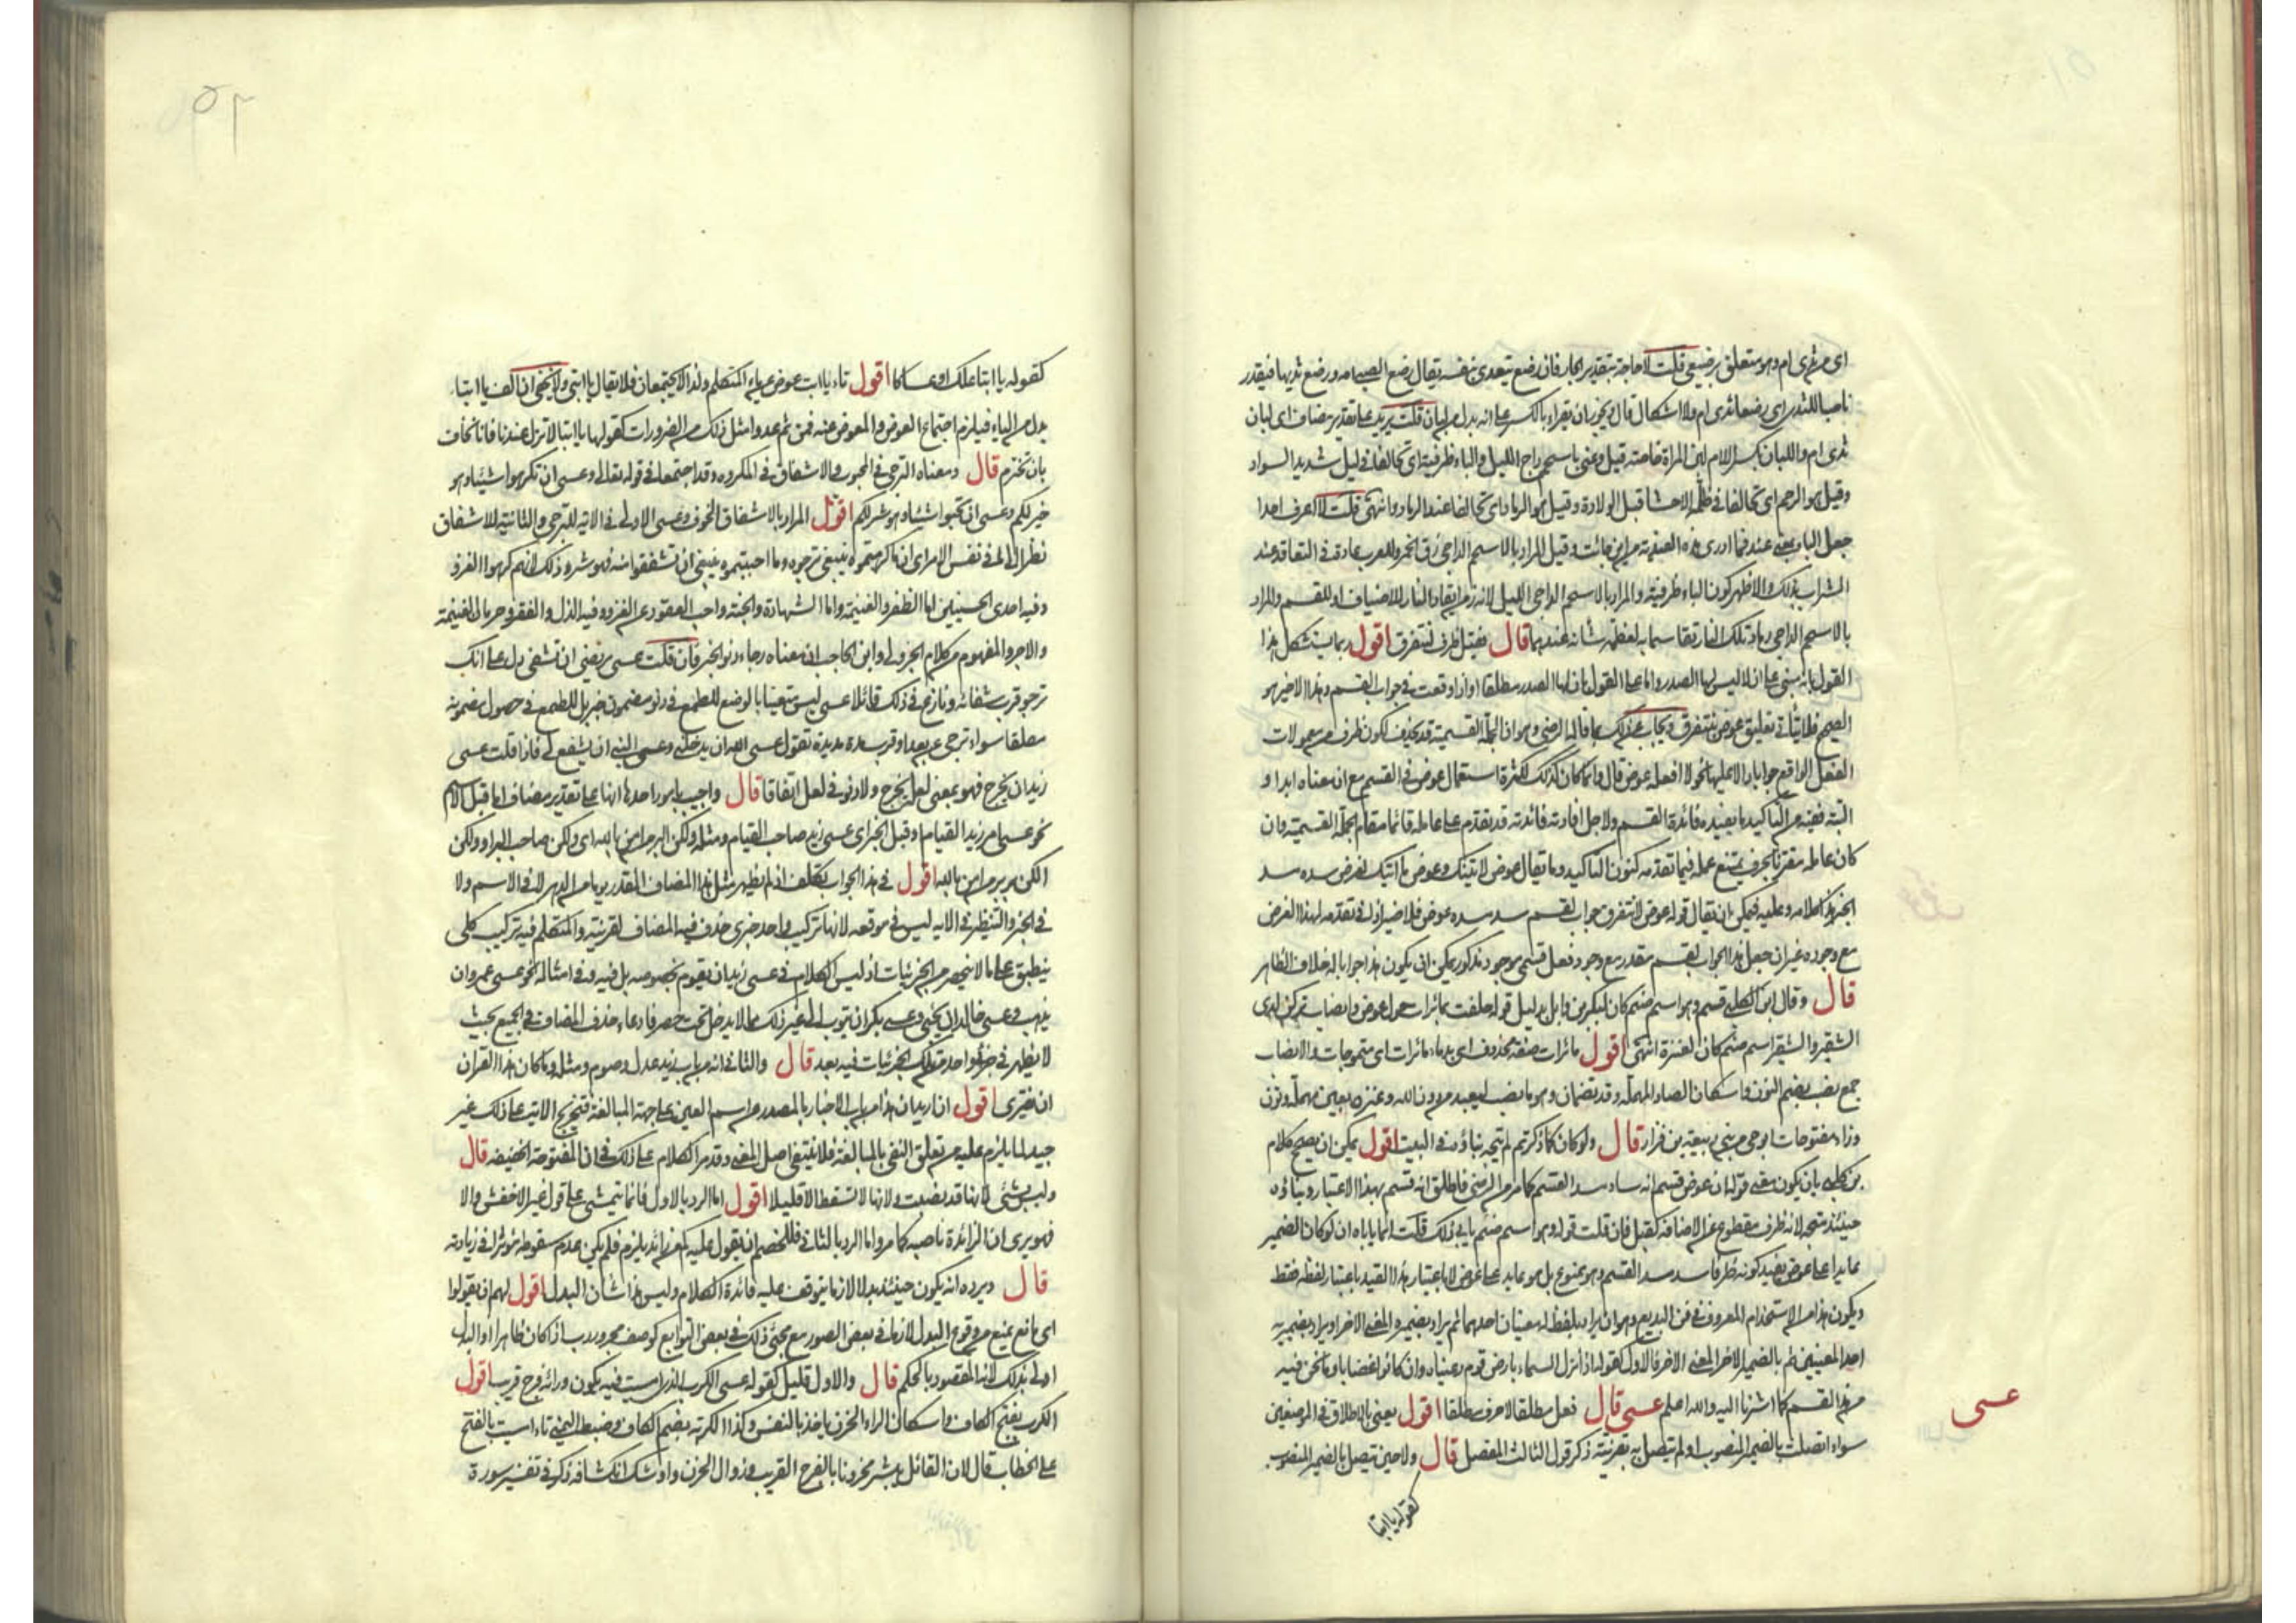 اى من ثدى ام وهو متعلق برضيعى قلت لا حاجة بتقدير الجار فان رضع يتعدى بنفسه يقال رضع الصبى امه ورضع ثديها فيقدر
ناصبا للثدى اى رضعا ثدى ام ولا اشكال قال ويجوز ان يقراء بالكسر على انه بدل من لبان قلت يريد على تقدير مضاف اى لبان
ثدى ام واللبان بكسر اللام لبن المراة خاصة قيل وعنى باسحم داج الليل والباء ظرفية اى تحالفا فى ليل شديد السواد
وقيل هو الرحم اى تحالفا فى ظلمة الاحشا قبل الولادة وقيل هو الرماد اى تحالفا عند الرماد وانتهى قلت لا اعرف احدا
جعل الباء بمعنى عند فما ادرى هذه العندية من اين جائت وقيل المراد بالاسحم الداجى زق الخمر وللعرب عادة فى التعاقد عند
الشراب بذلك والاظهر كون الباء ظرفية والمراد بالاسحم الداجى الليل لانه زمن ايقاد النار للاضياف او للقسم والمراد
بالاسحم الداجى رماد تلك النار تقاسما به لعظمة شانه عندهما قال فقيل ظرف لنتفرق اقول ربما يستشكل هذا
القول بانه مبنى على ان لا ليس لها الصدر واما على القول بان لها الصدر مطلقا او اذا وقعت فى جواب القسم وهذا الاخير هو
الصحيح فلا يتاتى تعليق عوض بنتفرق ويجاب عن ذلك بما قاله الرضى وهو ان الجملة القسمية قد تحذف لكون ظرف من معمولات
الفعل الواقع جوابا دالا عليها نحو لا افعله عوض قال وانما كان كذلك لكثرة استعمال عوض فى القسم مع ان معناه ابدا و
البتة ففيه من التاكيد ما يفيده فائدة القسم ولاجل افادته فائدته قد يقدم على عامله قائما مقام الجملة القسمية وان
كان عامله مقترنا بحرف يمتنع عمله فيما تقدمه كنون التاكيد وما يقال عوض لاتينك وعوض ما اتيك لغرض سده مسد
الخ هذا كلامه وعليه فيمكن ان يقال قوله عوض لا نتفرق جواب لقسم سد مسده عوض فلا ضير اذا فى تقدمه لهذا الغرض
مع وجوده غير ان جعل هذا الجواب لقسم مقدر مع وجود فعل قسمى موجود مذكور يمكن ان يكون هذا جوابا له خلاف الظاهر
قال وقال ابن الكلبى قسم وهو اسم صنم كان لبكر بن وايل بدليل قوله حلفت بمائرات حول عوض وانصاب تركن لدى
الشقير والشقير اسم صنم كان لعنزة انتهى اقول مائرات صفة محذوف اى بدماء مائرات اى متموجات والانصاب
جمع نصب بضم النون واسكان الصاد المهملة وقد يضمان وهو ما ينصب ليعبد من دون الله وعنزة بعين مهملة ونون
وزاء مفتوحات ابو حى من بنى ربيعة بن نزار قال ولو كان كما ذكرتم لم يتجه بناؤه فى البيت اقول يمكن ان يصحح كلام
بن كلبى بان يكون معنى قوله ان عوض قسم انه ساد مسد القسم كما مر من الرضى فاطلق انه قسم بهذا الاعتبار وبناؤه
حينئذ متجه لانه ظرف مقطوع عن الاضافة كقبل فان قلت قوله وهو اسم صنم يابى ذلك قلت انما ياباه ان لو كان الضمير
عايدا على عوض بقيد كونه ظرفا سد مسد القسم وهو ممنوع بل هو عايد على عوض لا باعتبار هذا القيد باعتبار لفظه فقط
ويكون هذا من الاستخدام المعروف فى فن البديع وهو ان يراد بلفظ له معنيان احدهما ثم يراد بضميره المعنى الاخر او يراد بضميريه
احد المعنيين ثم بالضمير الاخر المعنى الاخر فالاول كقوله اذا نزل السماء بارض قوم رعيناه وان كانوا غضابا وما نحن فيه
من هذا القسم كما اشرنا اليه والله اعلم عسى قال فعل مطلقا لا حرف مطلقا اقول يعنى بالاطلاق فى الموضعين
سواء اتصلت بالضمير المنصوب او لم تتصل به بقرينة ذكر قول الثالث المفصل قال ولا حين يتصل بالضمير المنصوب
عسى
كقوله يا ابتا
٥٢
كقوله يا ابتا علك او عساكا اقول تاء يا ابت عوض عن ياء المتكلم ولذا لا يجتمعان فلا يقال يا ابتى ولا يخفى ان الف يا ابتا
بدل من الياء فيلزم اجتماع العوض والمعوض عنه فمن ثم عدوا مثل ذلك من الضرورات كقولها يا ابتا لا تزل عندنا فانا نخاف
بان تخترم قال ومعناه الترجى فى المحبوب والاشفاق فى المكروه وقد اجتمعا فى قوله تعالى وعسى ان تكرهوا شيئا وهو
خير لكم وعسى ان تحبوا شيئا وهو شر لكم اقول المراد بالاشفاق الخوف وعسى الاولى فى الاية للترجى والثانية للاشفاق
نظرا الى ما فى نفس الامر اى ان ما كرهتموه ينبغى ترجوه وما احببتموه ينبغى ان تشفقوا منه فهو شر وذلك لانهم كرهوا الغزو
وفيه احدى الحسنيين اما الظفر والغنيمة واما الشهادة والجنة واحب القعود عن الغزو وفيه الذل والفقر وحرمان الغنيمة
والاجر والمفهوم من كلام الجزولى وابن الحاجب ان معناه رجاء دنو الخبر فان قلت عسى مريضى ان تشفى دل على انك
ترجو قرب شفائه ونازع فى ذلك قائلا عسى ليس متعينا بالوضع للطمع فى دنو مضمون خبره بل للطمع فى حصول مضمونه
مطلقا سواء ترجى عن بعد او قرب مدة مديدة تقول عسى الله ان يدخلنى وعسى النبى ان يشفع لى فاذا قلت عسى
زيد ان يخرج فهو بمعنى لعله يخرج ولا دنو فى لعل اتفاقا قال واجيب بامور احدها انها على تقدير مضاف اما قبل الاسم
نحو عسى امر زيد القيام او قبل الخبر اى عسى زيد صاحب القيام ومثله ولكن البر من امن بالله اى ولكن صاحب البر او ولكن
الكن البر بر من امن بالله اقول فى هذا الجواب تكلف اذ لم يظهر مثل هذا المضاف المقدر يوما من الدهر لا فى الاسم ولا
فى الخبر والتنظير فى الايه ليس فى موقعه لانها تركيب واحد جزى حذف فيه المضاف لقرينته والمتكلم فيه تركيب كلى
ينطبق على ما لا ينحصر من الجزئيات اذ ليس الكلام فى عسى زيد ان يقوم بخصوصه بل فيه وفى امثاله نحو عسى عمرو ان
يذهب وعسى خالد ان يجئ وعسى بكر ان يتوب الى غير ذلك مما لا يدخل تحت حصر فادعاء حذف المضاف فى الجميع بحيث
لا يظهر فى جزء واحد من تلك الجزئيات فيه بعد قال والثانى انه من باب زيد عدل وصوم ومثله وما كان هذا القران
ان يفترى اقول ان اريد ان هذا من باب الاخبار بالمصدر عن اسم العين على جهة المبالغة فتخريج الاية على ذلك غير
جيد لما يلزم عليه من تعلق النفى بالمبالغة فلا ينتفى اصل المعنى وقد مر الكلام على ذلك فى ان المفتوحة الخفيفة قال
وليس بشئ لانها قد نصبت ولانها لا تسقط الا قليلا اقول اما الرد بالاول فانما يتمشى على قول غير الاخفش والا
فهو يرى ان الزائدة ناصبة كما مر واما الرد بالثانى فللخصم ان يقول عليه كم من زائد يلزم فلم يكن عدم سقوطه مؤثرا فى زيادته
قال ويرده انه يكون حينئذ بدلا لازما يتوقف عليه فائدة الكلام وليس هذا شان البدل اقول لهم ان يقولوا
اى مانع يمنع من وقوع البدل لازما فى بعض الصور مع مجئ ذلك فى بعض التوابع كوصف مجرور رب اذا كان ظاهرا او البدل
اولى بذلك لانه المقصود بالحكم قال والاول قليل كقوله عسى الكرب الذى امسيت فيه يكون ورائه فرج قريب اقول
الكرب بفتح الكاف واسكان الراء الحزن ياخذ بالنفس وكذا الكربة بضم الكاف وضبط اليمنى تاء امسيت بالفتح
على الخطاب قال لان القائل يبشر محزونا بالفرج القريب وزوال الحزن واوشك انكشافه ذكره فى تفسير سورة